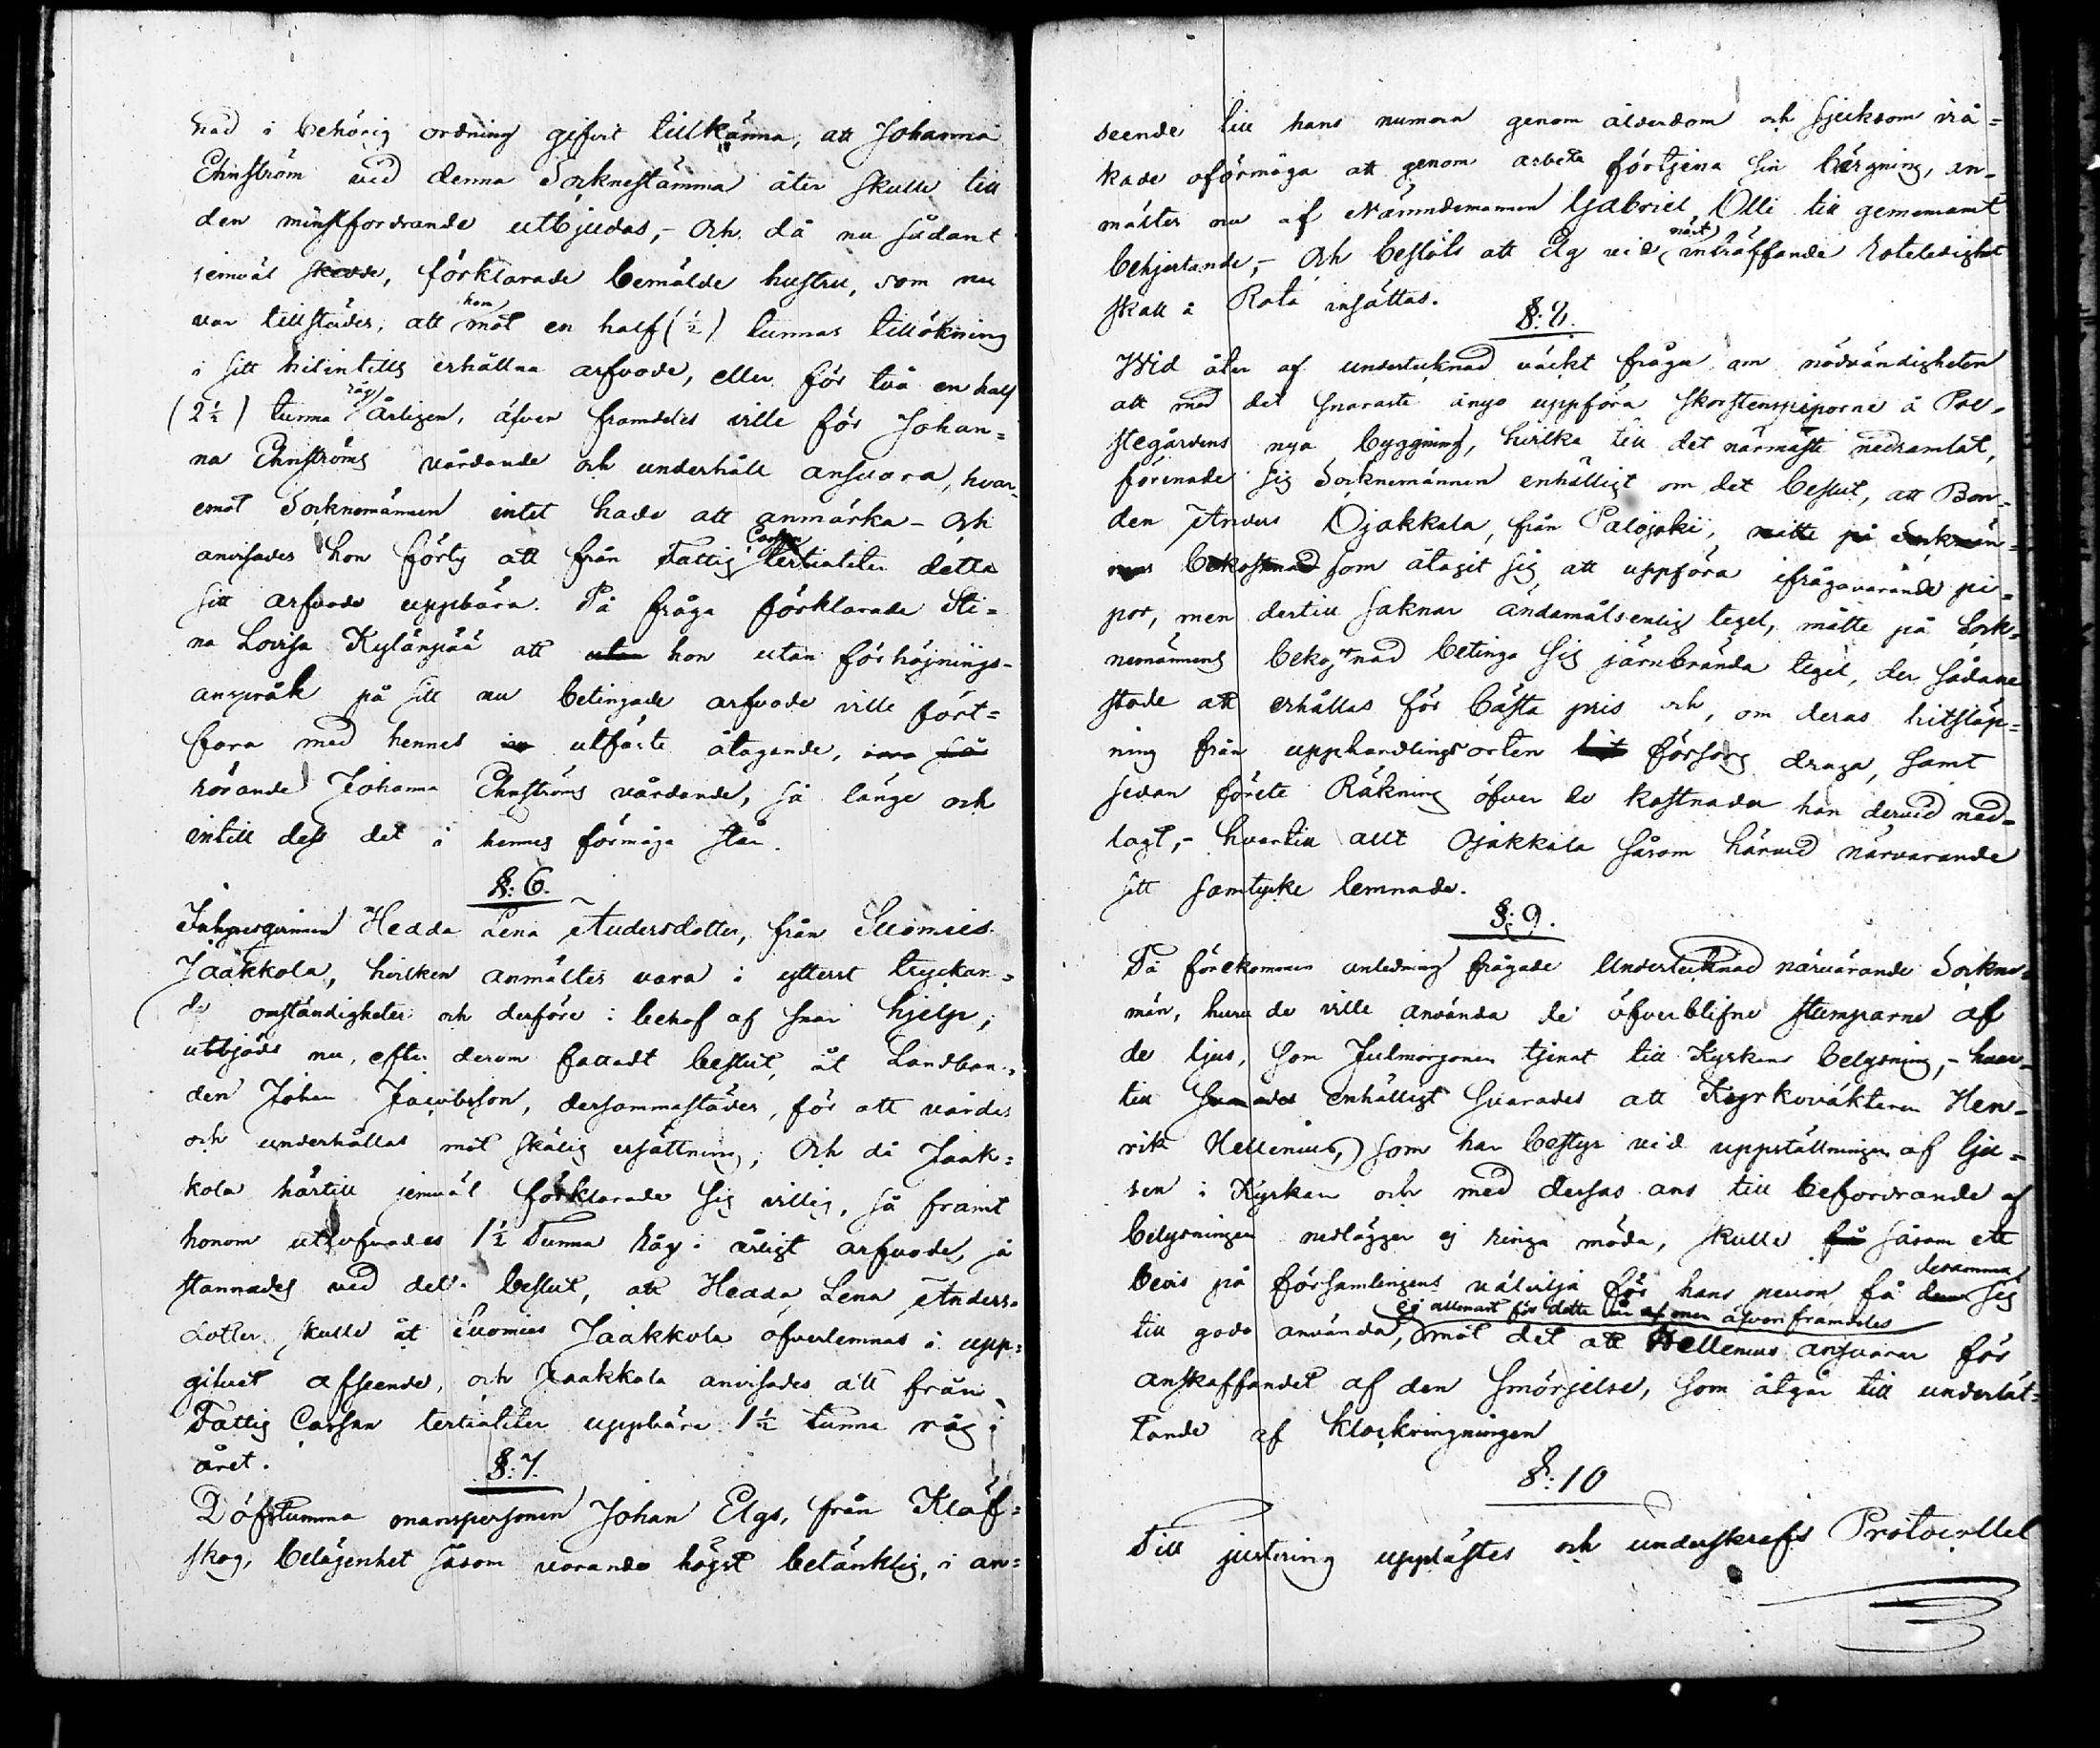 nad i behörig ordning gifvit tillkänna, att Johanna
Ehnström vid denna Socknestämma åter skulle till
den minstfordrande utbjudas,- och då nu sådant
jemväl skedde, förklarade bemälde hustru, som nu
var tillstädes, att hon mot en half (½) tunnas tillökning
i sitt hitintills erhållna arfvode, eller för två en half
(2½) tunna råg årligen, äfven framdeles ville för Johan=
na Ehnströms vårdande och underhåll ansvara, hvar=
emot Socknemännen intet hade att anmärka - och
anvisades hon förty att från Fattig Cassan tertialiter detta
sitt arfvode uppbära. På fråga förklarade Sti=
na Lovisa Kylänpää att utan hon utan förhöjnings-
anspråk på sitt nu betingade arfvode ville fort=
fara med hennes utfäste åtagande,
rörande Johanna Ehnströms vårdande, så länge och
intill dess det i hennes förmåga står.
§: 6.
Inhysesqvinnan Hedda Lena Andersdotter, från Suomies
Jaakkola, hvilken anmältes vara i ytterst tryckan=
de omständigheter och derföre i behof af snar hjelp,
utbjöds nu, efter derom fattadt beslut, åt Landbon=
den Johan Jacobsson, dersammastädes, för att vårdas
och underhållas mot skälig ersättning; Och då Jaak=
kola härtill jemväl förklarade sig villig, så framt
honom 1½ Tunna Råg i årligt arfvode, så
stannades vid det beslut, att Hedda Lena Anders=
dotter skulle åt Suomies Jaakkola öfverlemnas i upp=
gifvet afseende, och Jaakkola anvisades att från
Fattig Cassan tertialiter uppbära 1½ tunna råg i
året.
§: 7.
Döfstumma manspersonen Johan Elgs, från Klöf=
skog, belägenhet såsom varande högst betänklig, i an=
seende till hans numera genom ålderdom och sjukdom irå=
kade oförmåga att genom arbete förtjena sin bergning, an=
mältes nu af Nämndemannen Gabriel Olli till gemensamt
behjertande,- Och beslöts att Elg vid näst inträffande Roteledighet
skall å Rota insättas.
§: 8.
Wid åter af undertecknad väckt fråga om nödvändigheten
att med det snaraste ånyo uppföra skorstenspiporne å Pre=
stegårdens nya byggning, hvilka till det närmaste nedramlat,
förenade sig Socknemännen enhälligt om det beslut, att Bon=
den Anders Ojakkala, från Palojoki, måtte på Sockmän=
nens bekostnad som åtagit sig att uppföra ifrågavarande pi=
por, men dertill saknar ändamålsenlig tegel, måtte på Sock=
nemännens bekostnad betinga sig järnbrända tegel, der sådane
stode att erhållas för bästa pris och, om deras hitsläp=
ning från upphandlingsorten hit försorg draga, samt
sedan förete Räkning öfver de kostnader han dervid ned=
lagt,- hvartill allt Ojakkala såsom härvid närvarande
sitt samtycke lemnade.
§: 9.
På förekommen anledning frågade Undertecknad närvarande Sockne=
män, huru de ville använda de öfverblifne stumparne af
de ljus, som Julmorgonen tjenat till Kyrkans belysning,- hvar=
till svarades enhälligt svarades att Kyrkovaktaren Hen=
rik Hellenius, som har bestyr vid uppställningen af lju=
sen i Kyrkan och med dessas ans till befordrande af
belysningen nedlägger ej ringa möda, skulle få såsom ett
bevis på församlingens välvilja för hans person få dem desamma sig
till godo använda, ej allenast för detta år utan äfven framdeles
mot det att Hellenius ansvarar för
anskaffandet af den smörjelse, som åtgår till underlät=
tande af klockringningen
§: 10
Till justering upplästes och underskrefs Protocollet